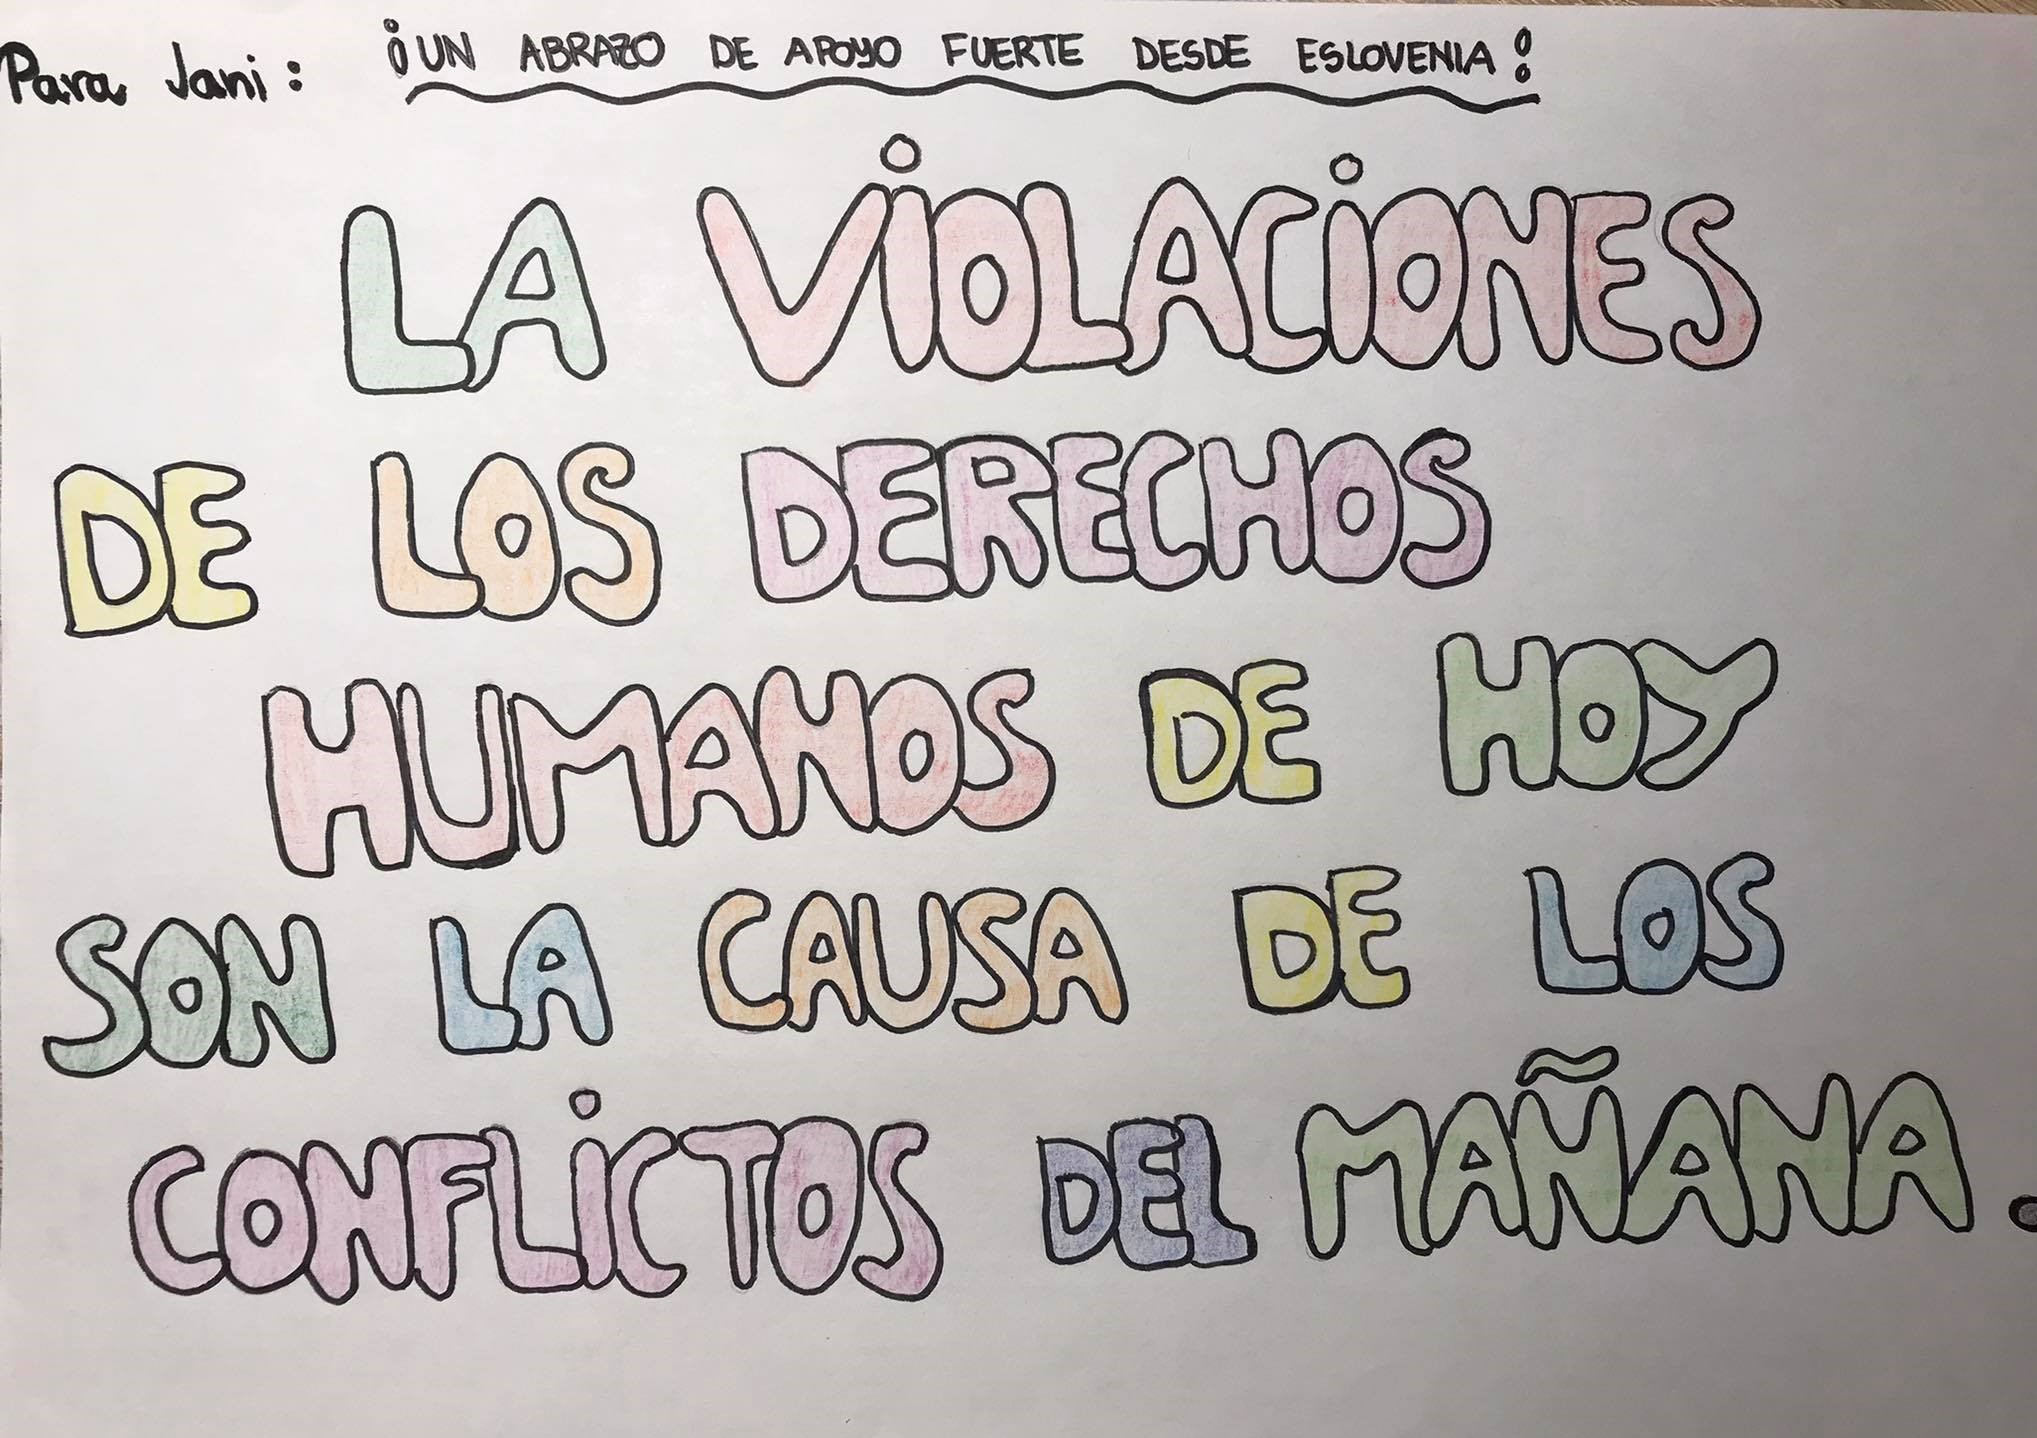 Para Jani: ¡UN ABRAZO DE APOYO FUERTE DESDE ESLOVENIA!
LA VIOLACIONES
DE LOS DERECHOS
HUMANOS DE HOY
SON LA CAUSA DE LOS
CONFLICTOS DEL MAÑANA.